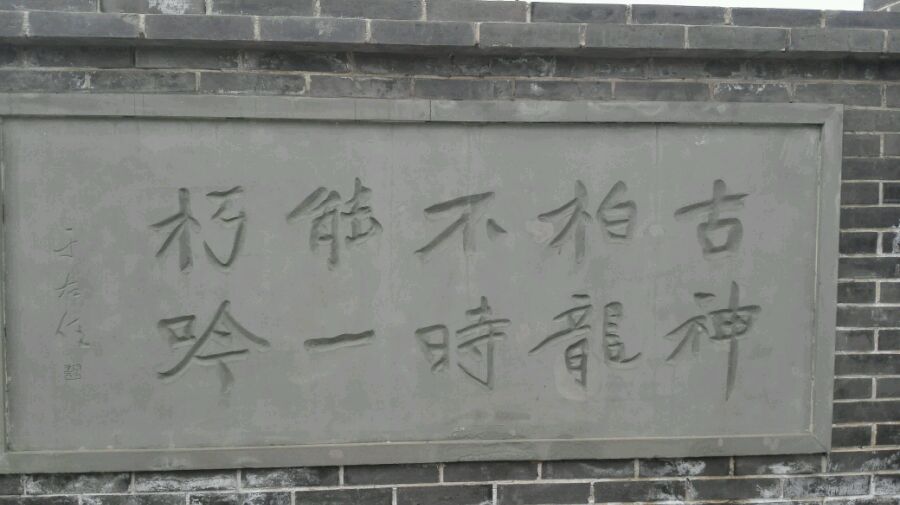 古柏不能朽
神龍時一吟
于右任